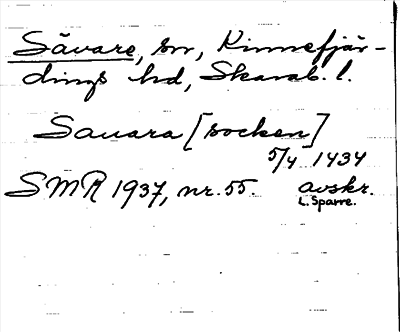 Sävare, sn, Kinnefjär-
dings hd, Skarab. l.
Sauara [socken]
5/4 1434
SMR 1937, nr. 55. avskr.
L. Sparre.